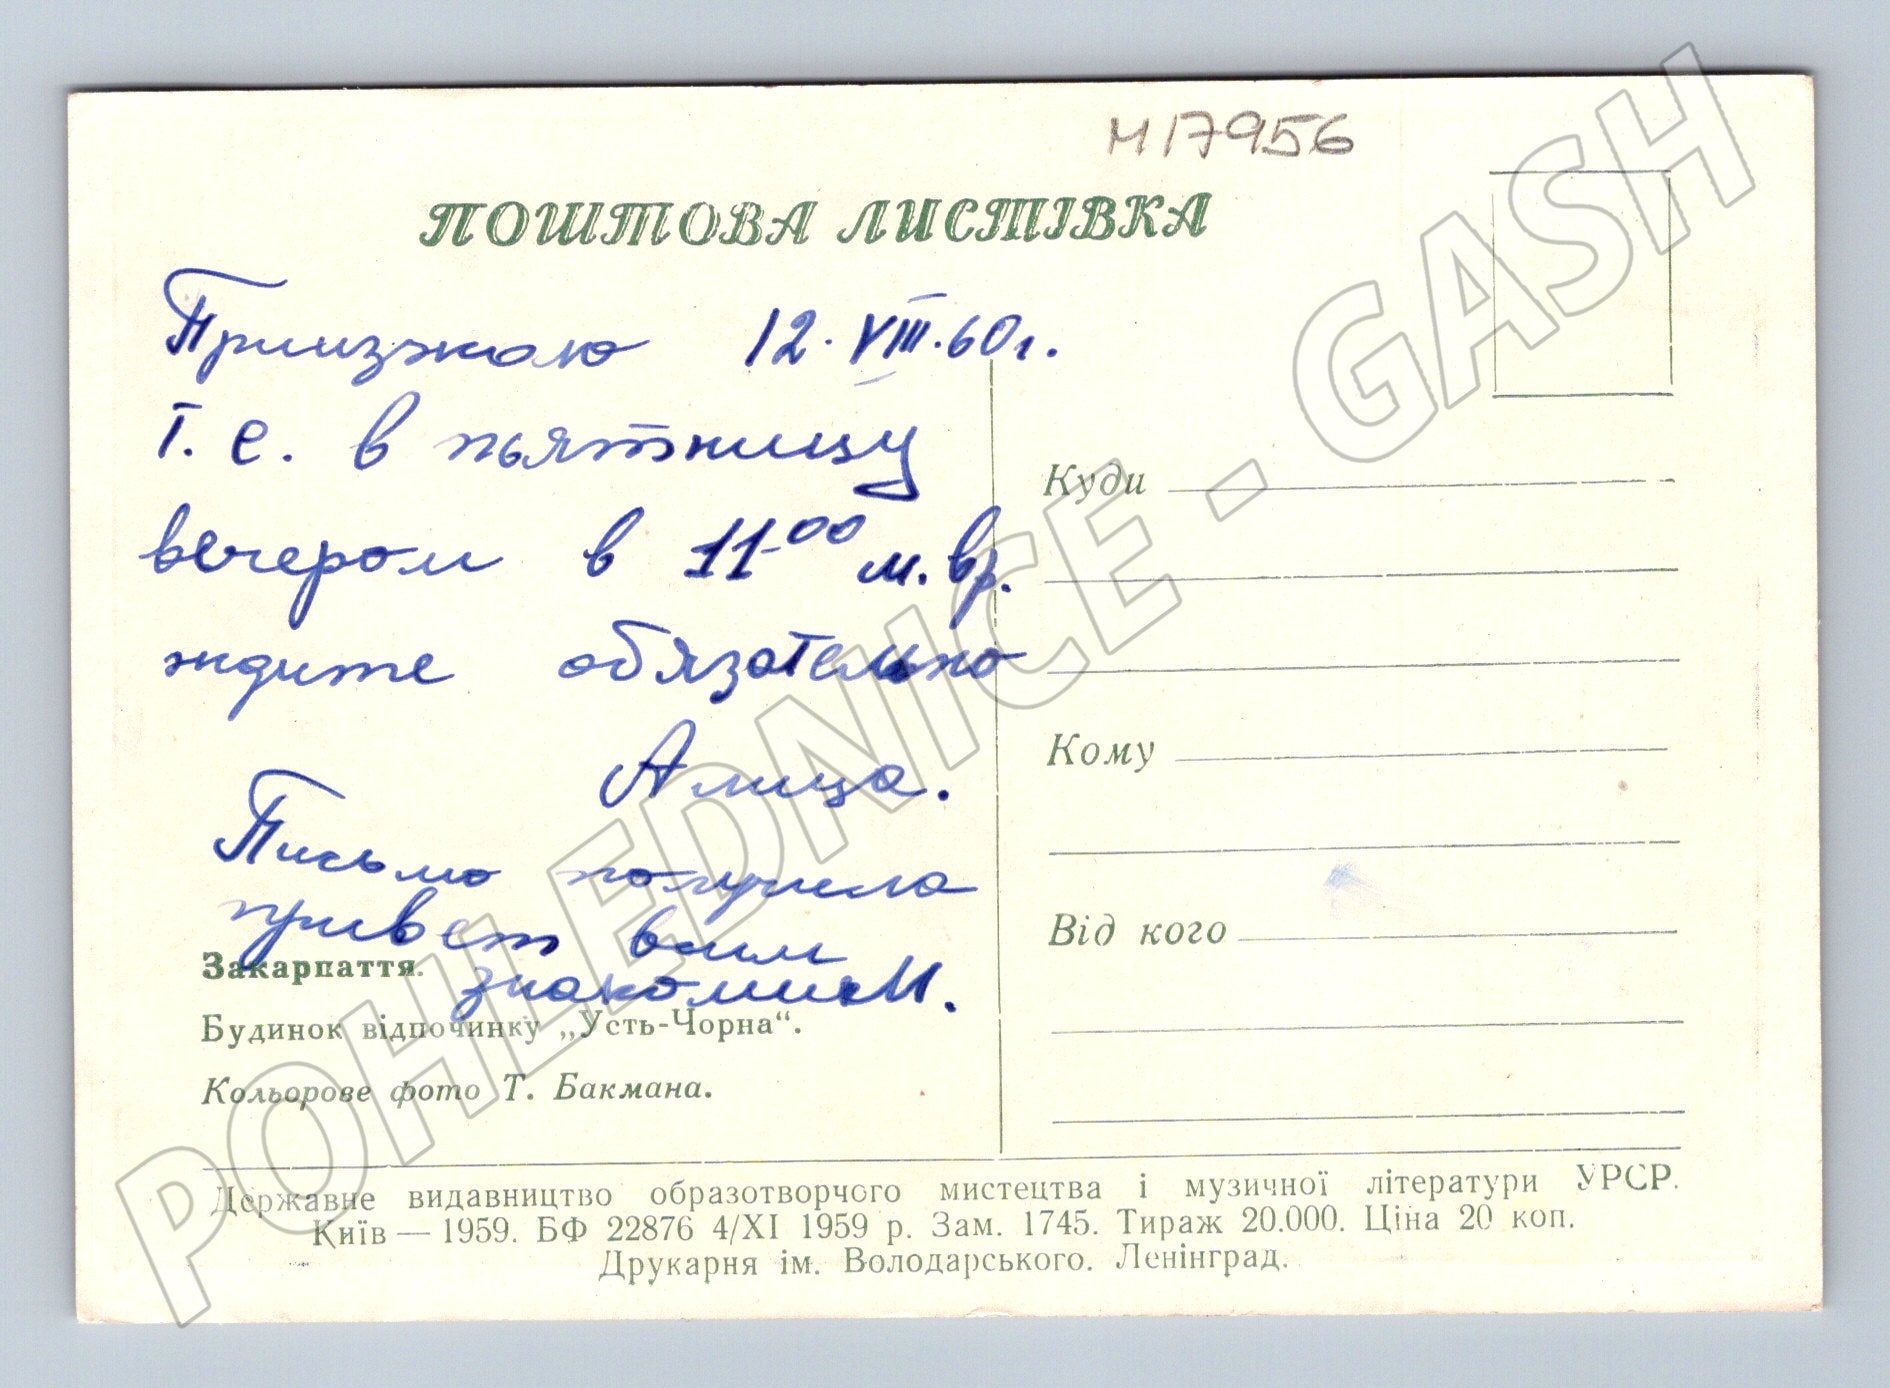 М17956
ПОШТОВА ЛИСТІВКА
Приизжаю 12.VIII.60г.
т.е. в пьятницу
вечером в 11-00 м.вр.
ждите обязательно
Алица.
Письмо получила
привет всим
знакомиим.
Закарпаття.
Будинок відпочинку „Усть-Чорна“.
Кольорове фото Т. Бакмана.
Куди
Кому
Від кого
Державне видавництво образотворчого мистецтва і музичної літератури УРСР.
Київ — 1959. БФ 22876 4/XI 1959 р. Зам. 1745. Тираж 20.000. Ціна 20 коп.
Друкарня ім. Володарського. Ленінград.
POHLEDNICE - GASH